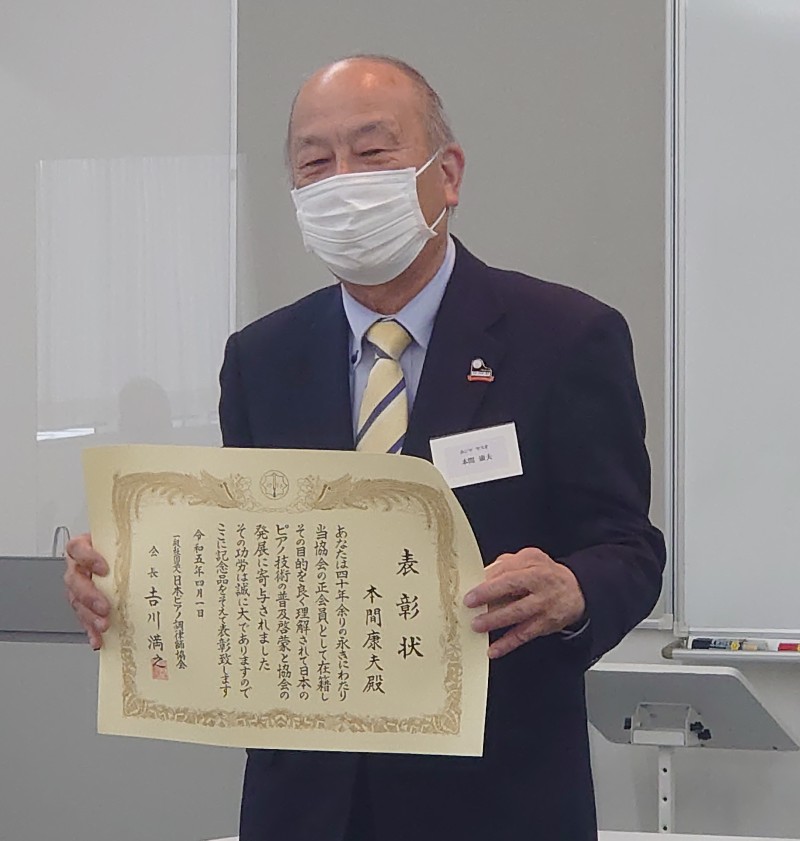 表彰状
本間康夫殿
あなたは四十年余りの永きにわたり
当協会の正会員として在籍し
その目的を良く理解されて日本の
ピアノ技術の普及啓蒙と協会の
発展に寄与されました
その功労は誠に大でありますので
ここに記念品を添えて表彰致します
令和五年四月一日
一般社団法人日本ピアノ調律師協会
会長 吉川満之
本間 康夫